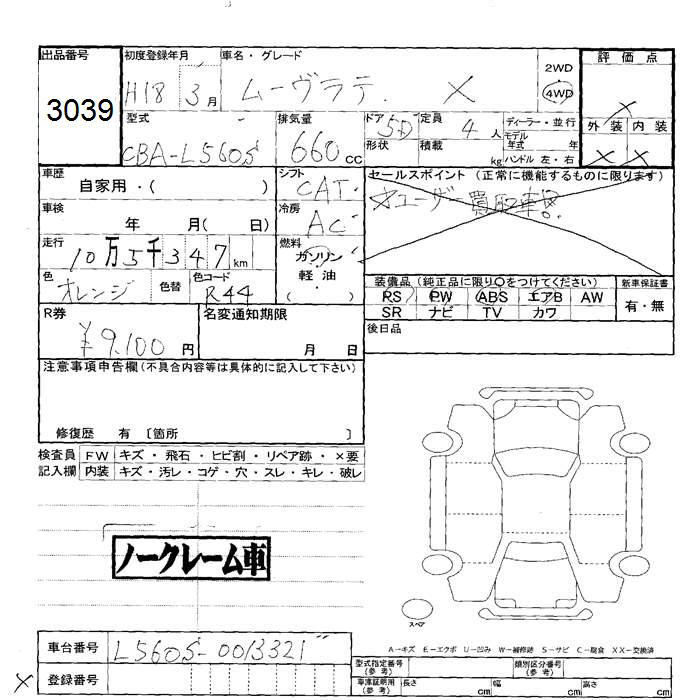 出品番号
3039
初度登録年月
H18 3月
車名・グレード
ムーヴラテ X
2WD
4WD
評価点
外装 内装
X
X X
型式
CBA-L560S
排気量
660 CC
ドア 5D
形状
定員 4人
積載 kg
ディーラー・並行
モデル年式 年
ハンドル 左・右
車歴
自家用・( )
シフト
CAT
セールスポイント (正常に機能するものに限ります)
ユーザー買取車!!
車検
年 月( 日)
冷房
AC
走行
10万5千347km
燃料
ガソリン
軽油
( )
色
オレンジ
色替
色コード
R44
装備品 (純正品に限り○をつけてください)
RS PW ABS エアB AW
SR ナビ TV カワ
新車保証書
有・無
R券
¥9,100円
名変通知期限
月 日
後日品
注意事項申告欄 (不具合内容等は具体的に記入して下さい)
修復歴 有 〔箇所 〕
検査員記入欄
FW キズ・飛石・ヒビ割・リペア跡・×要
内装 キズ・汚レ・コゲ・穴・スレ・キレ・破レ
ノークレーム車
スペア
A-キズ E-エクボ U-凹み W-補修跡 S-サビ C-腐食 XX-交換済
車台番号
L560S-0013321
X 登録番号
型式指定番号(参考)
類別区分番号(参考)
車庫証明用(参考) 長さ cm 幅 cm 高さ cm